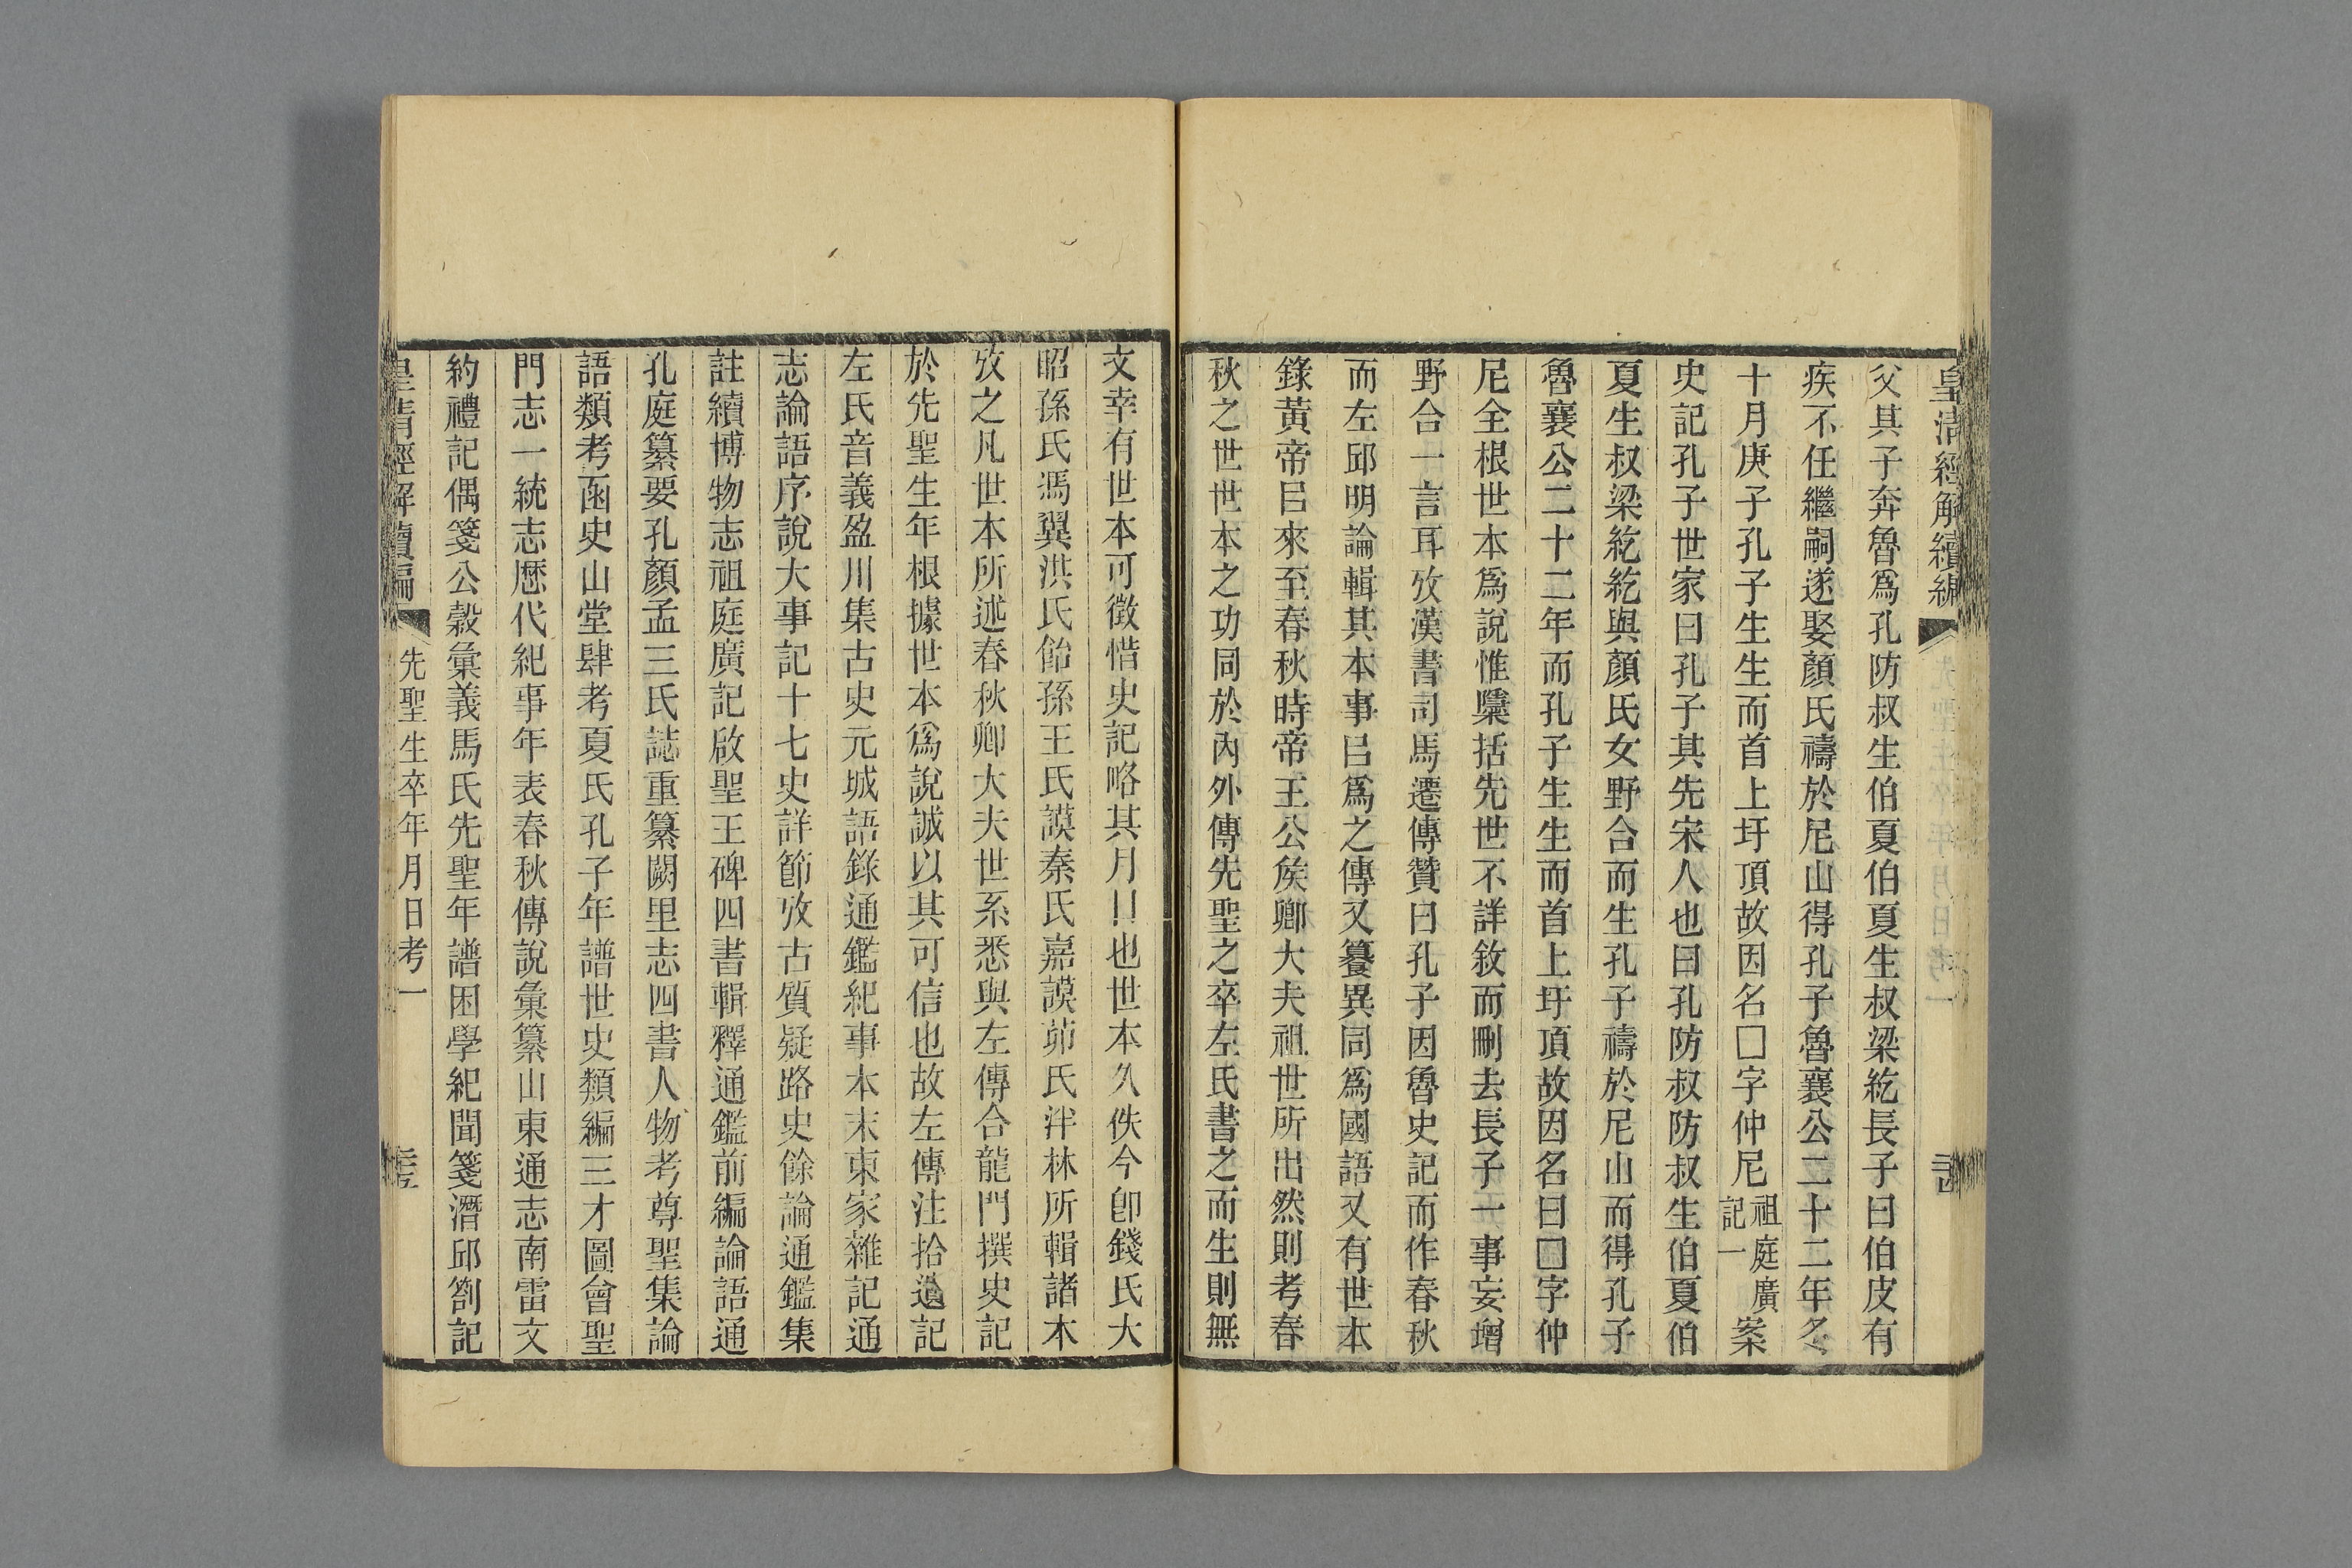 皇清經解續編
父其子奔魯爲孔防叔生伯夏伯夏生叔梁紇長子曰伯皮有
疾不任繼嗣遂娶顏氏禱於尼山得孔子魯襄公二十二年冬
十月庚子孔子生生而首上圩頂故因名□字仲尼祖庭廣記一案
史記孔子世家曰孔子其先宋人也曰孔防叔防叔生伯夏伯
夏生叔梁紇紇與顏氏女野合而生孔子禱於尼山而得孔子
魯襄公二十二年而孔子生生而首上圩頂故因名曰□字仲
尼全根世本爲說惟檃括先世不詳敘而刪去長子一事妄增
野合一言耳攷漢書司馬遷傳贊曰孔子因魯史記而作春秋
而左邱明論輯其本事㠯爲之傳又籑異同爲國語又有世本
錄黃帝㠯來至春秋時帝王公矦卿大夫祖世所出然則考春
秋之世世本之功同於內外傳先聖之卒左氏書之而生則無
文幸有世本可徵惜史記略其月日也世本久佚今卽錢氏大
昭孫氏馮翼洪氏飴孫王氏謨秦氏嘉謨茆氏泮林所輯諸本
攷之凡世本所述春秋卿大夫世系悉與左傳合龍門撰史記
於先聖生年根據世本爲說誠以其可信也故左傳注拾遺記
左氏音義盈川集古史元城語錄通鑑紀事本末東家雜記通
志論語序說大事記十七史詳節攷古質疑路史餘論通鑑集
註續博物志祖庭廣記啟聖王碑四書輯釋通鑑前編論語通
孔庭纂要孔顏孟三氏誌重纂闕里志四書人物考尊聖集論
語類考函史山堂肆考夏氏孔子年譜世史類編三才圖會聖
門志一統志歷代紀事年表春秋傳說彙纂山東通志南雷文
約禮記偶箋公穀彙義馬氏先聖年譜困學紀聞箋潛邱劄記
皇清經解續編 先聖生卒年月日考一